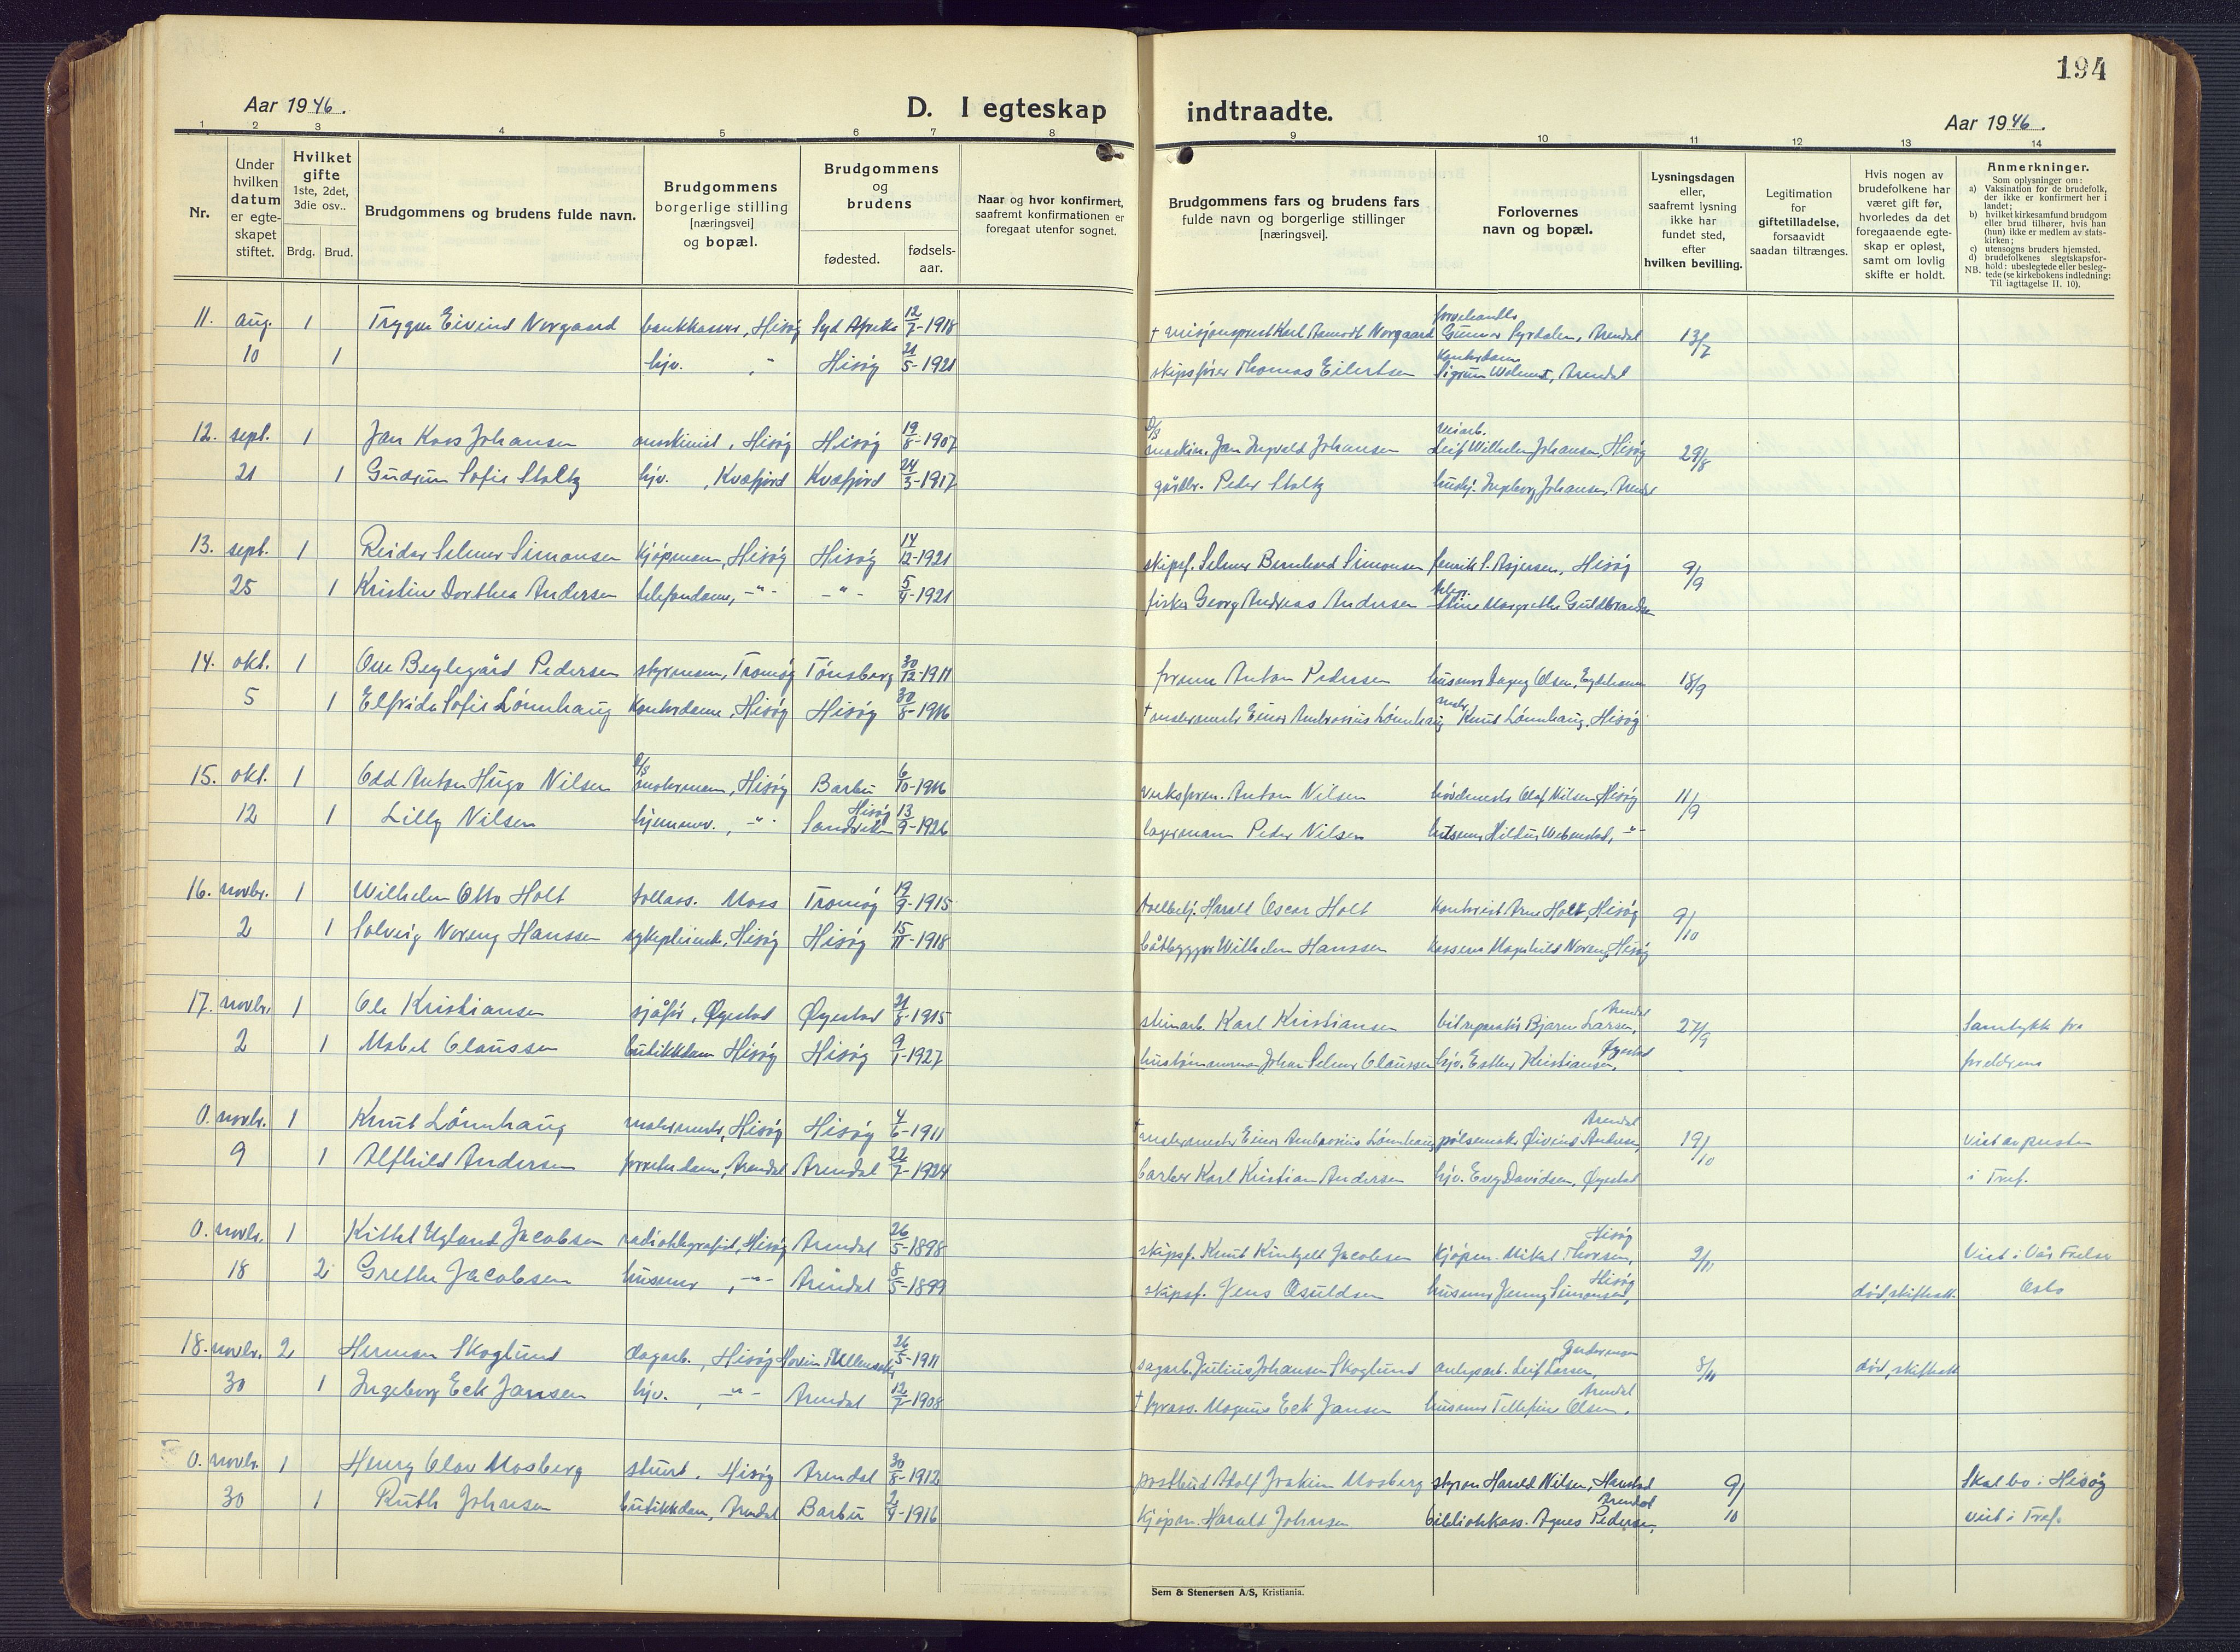 194
Aar 1946.
D. I egteskap indtraadte.
Aar 1946.
1 2 3 4 5 6 7 8 9 10 11 12 13 14
Nr.
Under hvilken datum er egte-skapet stiftet.
Hvilket gifte 1ste, 2det, 3die osv..
Brdg. Brud.
Brudgommens og brudens fulde navn.
Brudgommens borgerlige stilling [næringsvei] og bopæl.
Brudgommens og brudens
fødested. fødsels-aar.
Naar og hvor konfirmert, saafremt konfirmationen er foregaat utenfor sognet.
Brudgommens fars og brudens fars fulde navn og borgerlige stillinger [næringsvei].
Forlovernes navn og bopæl.
Lysningsdagen eller, saafremt lysning ikke har fundet sted, efter hvilken bevilling.
Legitimation for giftetilladelse, forsaavidt saadan tiltrænges.
Hvis nogen av brudefolkene har været gift før, hvorledes da det foregaaende egte-skap er opløst, samt om lovlig skifte er holdt.
Anmerkninger.
Som oplysninger om:
a) Vaksination for de brudefolk, der ikke er konfirmert her i landet;
b) hvilket kirkesamfund brudgom eller brud tilhører, hvis han (hun) ikke er medlem av stats-kirken;
c) utensogns bruders hjemsted.
d) brudefolkenes slegtskapsfor-hold: ubeslegtede eller besleg-tede (se kirkebokens indledning: Til iagttagelse II. 10).
NB.
11. aug. 1 Trygve Eivind Norgaard bankkasser, Hisøy Syd Afrika 12/7-1918 † misjonsprest Karl Asmodt Norgaard Gunnar Syrdalen, Arendal 13/7
10 1 hjv. " Hisøy 21/5-1921 skipsfører Thomas Eilertsen kontordame Sigrun, Arendal
12. sept. 1 Jan Kaos Johansen maskinist, Hisøy Hisøy 19/8-1907 maskin. Jan Ingvald Johansen Leif Wilhelm Johansen, Hisøy 29/8
21 1 Gudrun Sofie Stoltz hjv., Kvæfjord Kvæfjord 24/3-1917 gårdbr. Peder Stoltz hushj. Ingeborg Johansen, Arendal
13. sept. 1 Reidar Selmer Simonsen kjøpmann, Hisøy Hisøy 14/12-1921 skipsf. Selmer Bernhard Simonsen Henrik S. Asjersen, Hisøy 9/9
25 1 Kristine Dorthea Andersen telefondame, -"- -"- 5/4-1921 fisker Georg Andreas Andersen Stine Margrethe Guldbrandsen
14. okt. 1 Ove Beylegård Pedersen styrmann, Tromøy Tønsberg 30/12-1911 formann Anton Pedersen husmor Dagny Olsen, Eydehavn 18/9
5 1 Elfrida Sofie Lønnhaug kontordame, Hisøy Hisøy 30/8-1916 † malermester Einar Ambrosius Lønnhaug maler Knut Lønnhaug, Hisøy
15. okt. 1 Odd Anton Hugo Nilsen motormann, Hisøy Barbu 6/10-1916 verksform. Anton Nilsen Olaf Nilsen, Hisøy 11/9
12 1 Lilly Nilsen hjemmev., -"- Sandviken Hisøy 13/9-1926 lagermann Peder Nilsen husmor Hildur, -"-
16. novbr. 1 Wilhelm Otto Holt tollass. Moss Tromøy 19/9-1915 tollbetj. Harald Oscar Holt kontorist Arne Holt, Hisøy 9/10
2 1 Solveig Noreng Hanssen sykepleierske, Hisøy Hisøy 15/11-1918 båtbygger Wilhelm Hanssen Magnhild Noreng, Hisøy
17. novbr. 1 Ole Kristiansen sjåfør, Øyestad Øyestad 21/8-1915 steinarb. Karl Kristiansen bilreparatør Bjarne Larsen, Arendal 27/9 Samtykke fra
2 1 Mabel Claussen butikkdam Hisøy Hisøy 9/1-1927 hustømmermann Johan Selmer Claussen hjv. Esther Kristiansen, Øyestad foreldrene
0. novbr. 1 Knut Lønnhaug malermester, Hisøy Hisøy 4/6-1911 † malermester Einar Ambrosius Lønnhaug pølsemaker Øivind Andersen, Arendal 19/10 Viet av presten
9 1 Alfhild Andersen dame, Arendal Arendal 22/7-1924 barber Karl Kristian Andersen hjv. Evy Davidsen, Øyestad i Tref.
0. novbr. 1 Kittel Ugland Jacobsen radiotelegrafist, Hisøy Arendal 26/5-1898 skipsf. Knut Jacobsen kjøpm. Mikal Thorsen, Hisøy 2/11 Viet i Vår Frelser
18 2 Grethe Jacobsen husmor, -"- Arendal 8/5-1899 skipsf. Jens Osuldsen husmor Jenny Simonsen, Hisøy død, skiftatt. Oslo
18. novbr. 2 Herman Skoglund dagarb., Hisøy Hovin i Ullensaker 26/5-1911 sagarb. Julius Johansen Skoglund anlegsarb. Leif Larsen, 8/11 død, skiftatt
30 1 Ingeborg Eek Jansen hjv. -"- Arendal 12/7-1908 † Magnus Eek Jansen husmor Tellefine Olsen, Arendal
0. novbr. 1 Henry Olav Mosberg stuert. Hisøy Arendal 30/8-1912 postbud Adolf Joakim Mosberg styrm Harald Nilsen, 9/10 Skal bo i Hisøy
30 1 Ruth Johnsen butikkdam, Arendal Barbu 2/4-1916 kjøpm. Harald Johnsen bibliotekass. Agnes Pedersen, Arendal viet i Tref.
Sem & Stenersen A/S, Kristiania.